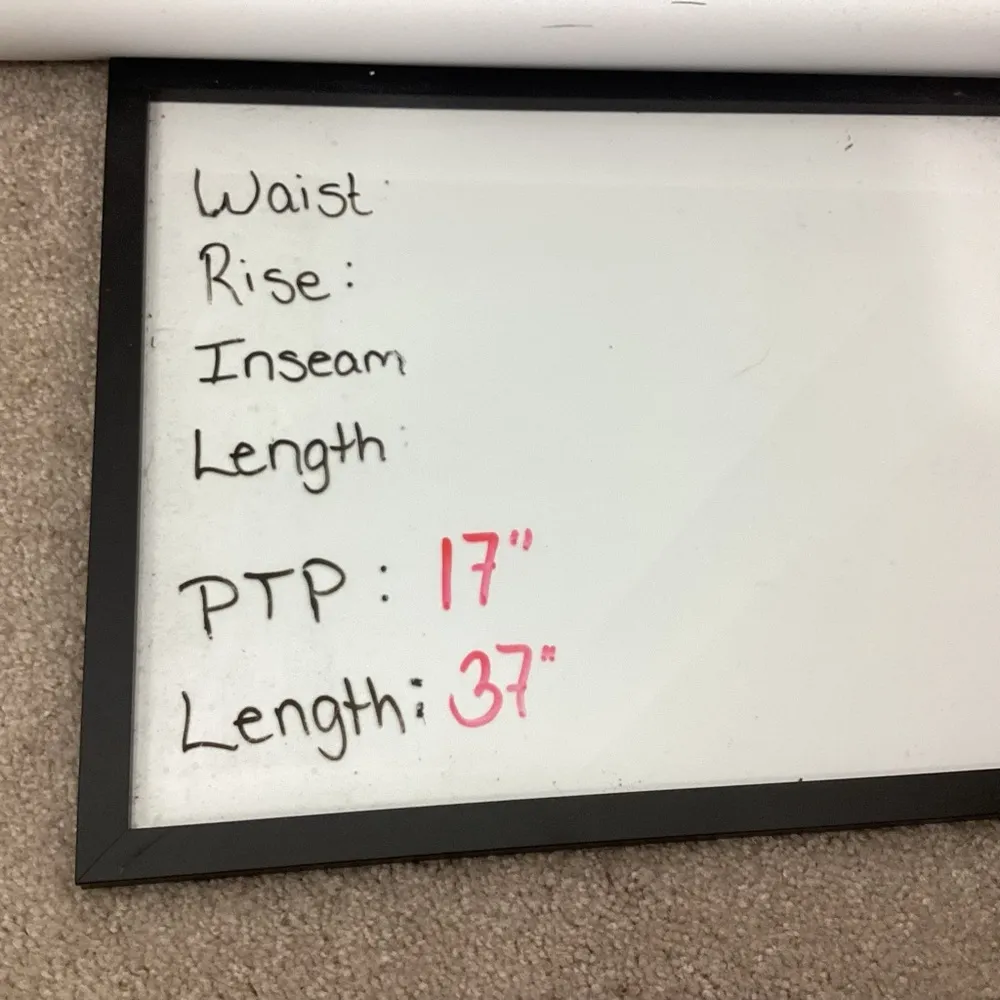 Waist:
Rise:
Inseam
Length:
PTP: 17"
Length: 37"